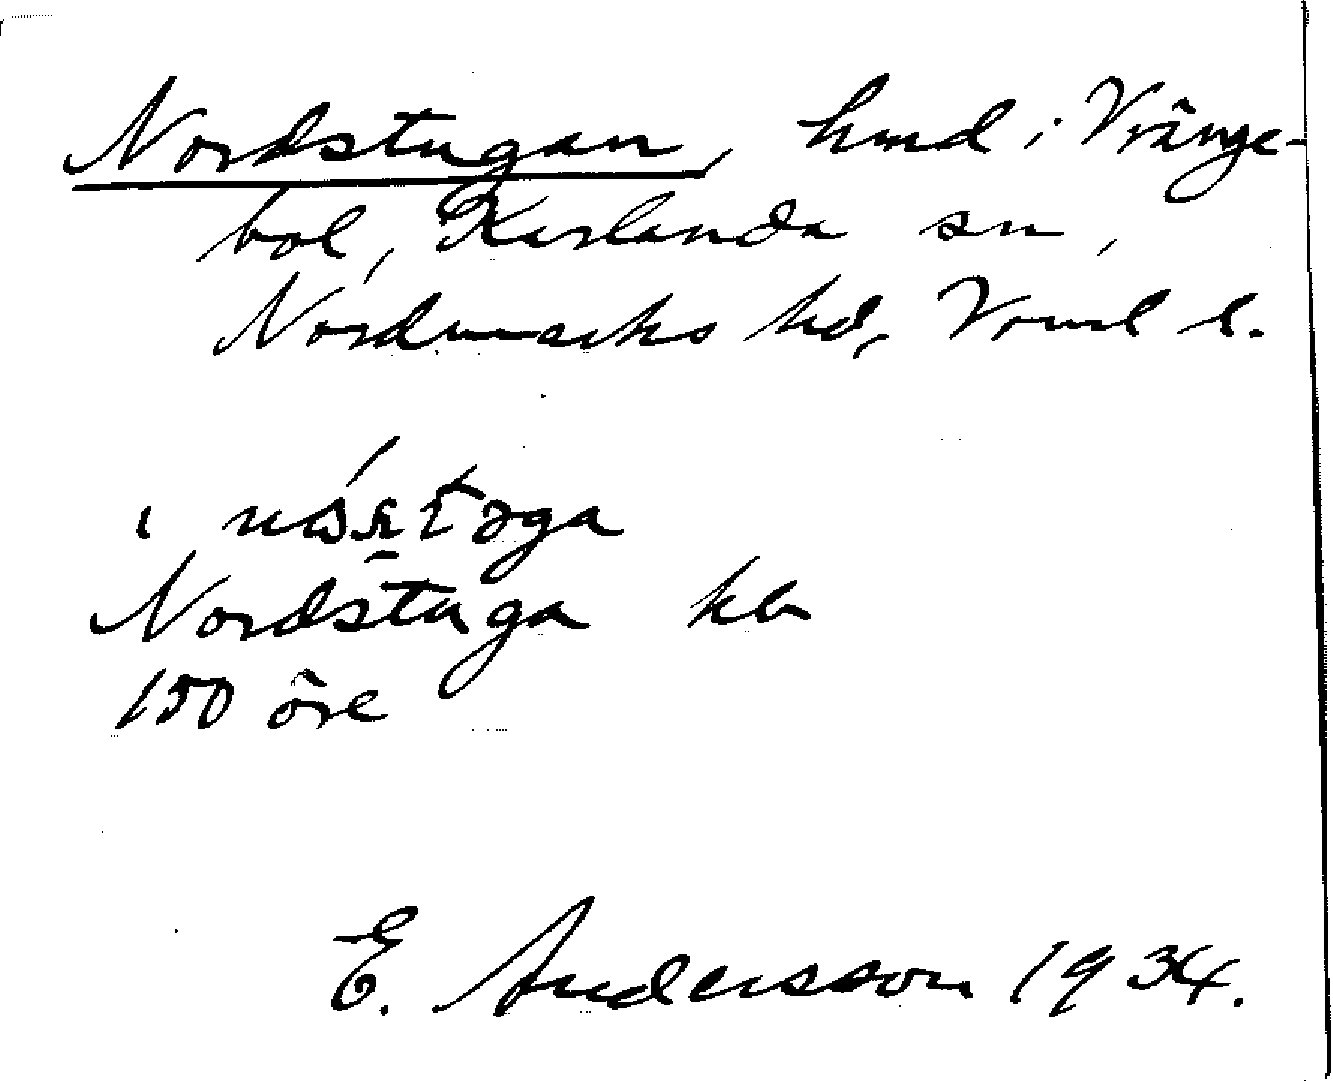 Nordstugan, hmd i Vränge-
bol, Karlanda sn,
Nordmarks hd, Vrml l.
i
Nordstuga
150 öre
E. Andersson 1934.